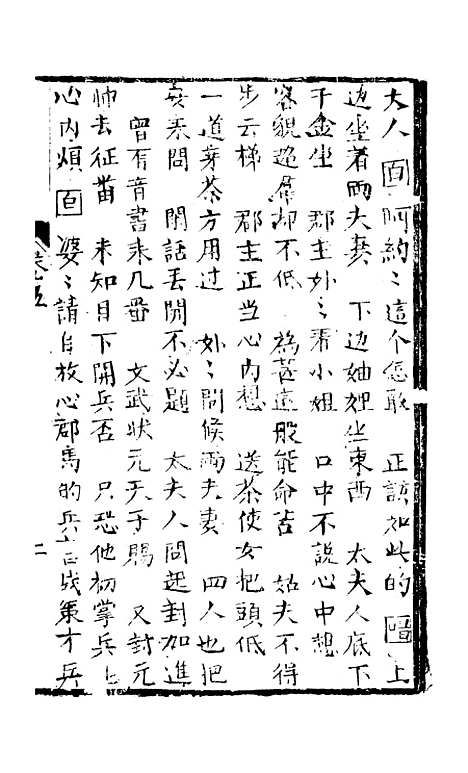 大人 白 阿約〻這个怎敢 正該如此的 唱 上
边坐着両夫妻 下边妯娌坐東西 太夫人底下
千金坐 郡主妙〻看小姐 口中不説心中想
容貌超羣却不低 為甚這般能命苦 姑夫不得
步云梯 郡主正当心内想 送茶使女把頭低
一道芽茶方用过 妙〻問候両夫妻 四人也把
安来問 閒話丢開不必題 太夫人問起封加進
曾有音書来几番 文武狀元天子賜 又封元
帅去征番 未知目下開兵否 只恐他初掌兵
心内煩 白 婆〻請自放心郡馬的兵 成策才兵
卷五
二